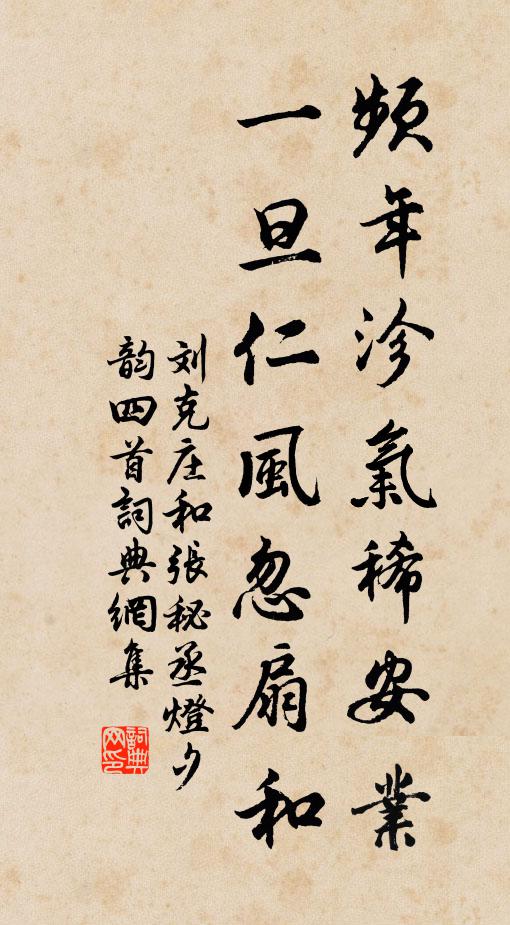 頻年沴氣稀安業
一旦仁風忽扇和
刘克庄和張秘丞燈夕
韵四首詞典網集
詞典网印